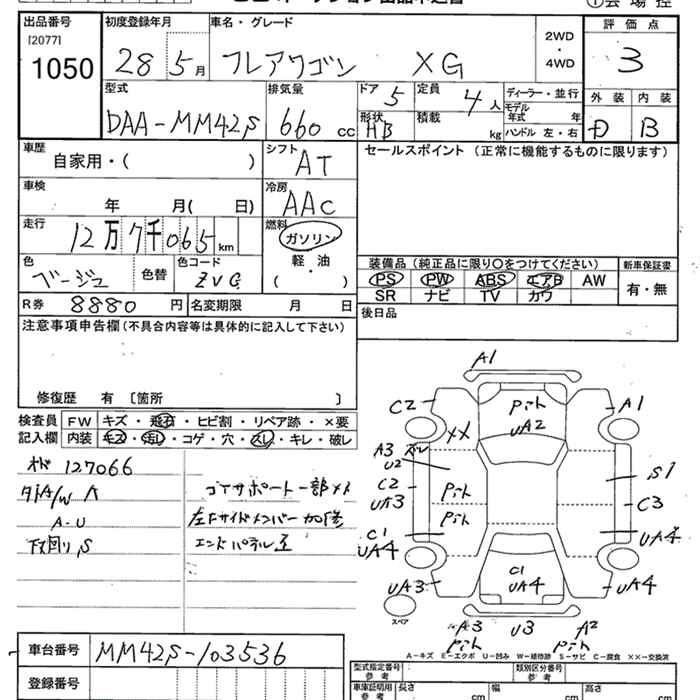 出品番号
[2077]
1050
初度登録年月
28 5月
車名・グレード
フレアワゴン XG
2WD
・
4WD
評価点
3
型式
DAA-MM42S
排気量
660 cc
ドア 5
定員 4人
ディーラー・並行
モデル年式 年
形状 HB
積載 kg
ハンドル 左・右
外装
内装
D
B
車歴
自家用・( )
シフト
AT
セールスポイント (正常に機能するものに限ります)
車検
年 月( 日)
冷房
AAC
走行
12万7千065 km
燃料
ガソリン
軽・油
( )
色
ベージュ
色替
色コード
ZVG
装備品(純正品に限り○をつけてください)
新車保証書
PS PW ABS エアB AW
SR ナビ TV カワ
有・無
R券 8880 円
名変期限 月 日
後日品
注意事項申告欄(不具合内容等は具体的に記入して下さい)
修復歴 有 [箇所 ]
検査員
記入欄
FW キズ・飛石・ヒビ割・リペア跡・×要
内装 キズ・汚レ・コゲ・穴・スレ・キレ・破レ
127066
A-U
下回り S
コアサポート一部メ
左Fサイドメンバー加修
エンドパネル
A1
C2
A1
ピット
UA2
XX
A3
U2
C2
UA3
ピット
ピット
S1
C3
C1
UA4
UA4
C1
UA4
UA3
UA4
スペア
A3
ピット
U3
A2
ピット
A−キズ E−エクボ U−凹み W−補修跡 S−サビ C−腐食 ××−交換済
車台番号
MM42S-103536
登録番号
型式指定番号
参考
類別区分番号
参考
車庫証明用
参考
長さ cm
幅 cm
高さ cm